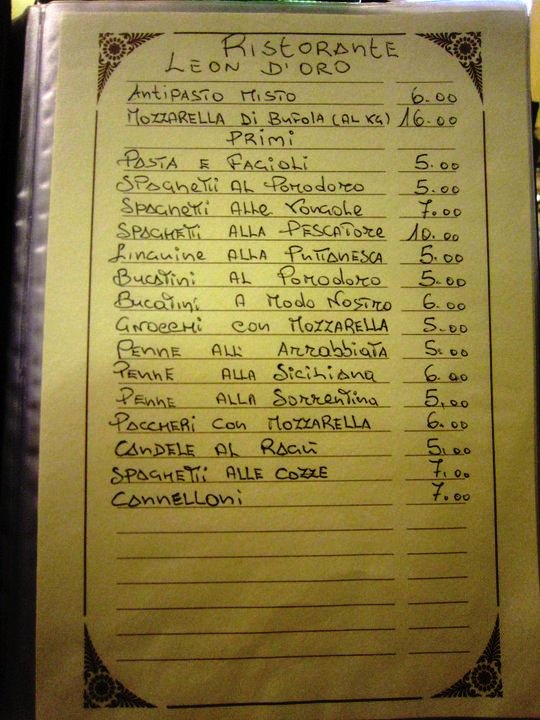 Ristorante
Leon D'oro
Antipasto Misto 6.00
Mozzarella Di Bufola (al kg) 16.00
Primi
Pasta e Fagioli 5.00
Spaghetti al Pomodoro 5.00
Spaghetti alle Vongole 7.00
Spaghetti alla Pescatore 10.00
Linguine alla Puttanesca 5.00
Bucatini al Pomodoro 5.00
Bucatini a Modo Nostro 6.00
Gnocchi con Mozzarella 5.00
Penne all' Arrabbiata 5.00
Penne alla Siciliana 6.00
Penne alla Sorrentina 5,00
Paccheri con Mozzarella 6.00
Candele al Ragù 5,00
Spaghetti alle Cozze 7,00
Cannelloni 7.00